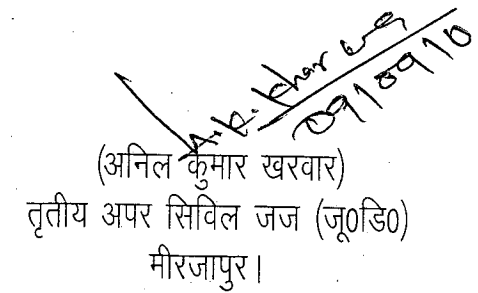 A.K. Kharwa
09/09/10
(अनिल कुमार खरवार)
तृतीय अपर सिविल जज (जू0डि0)
मीरजापुर।